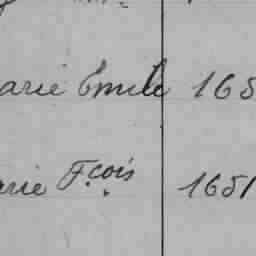 arie Emile 165
arie F.çois 1651